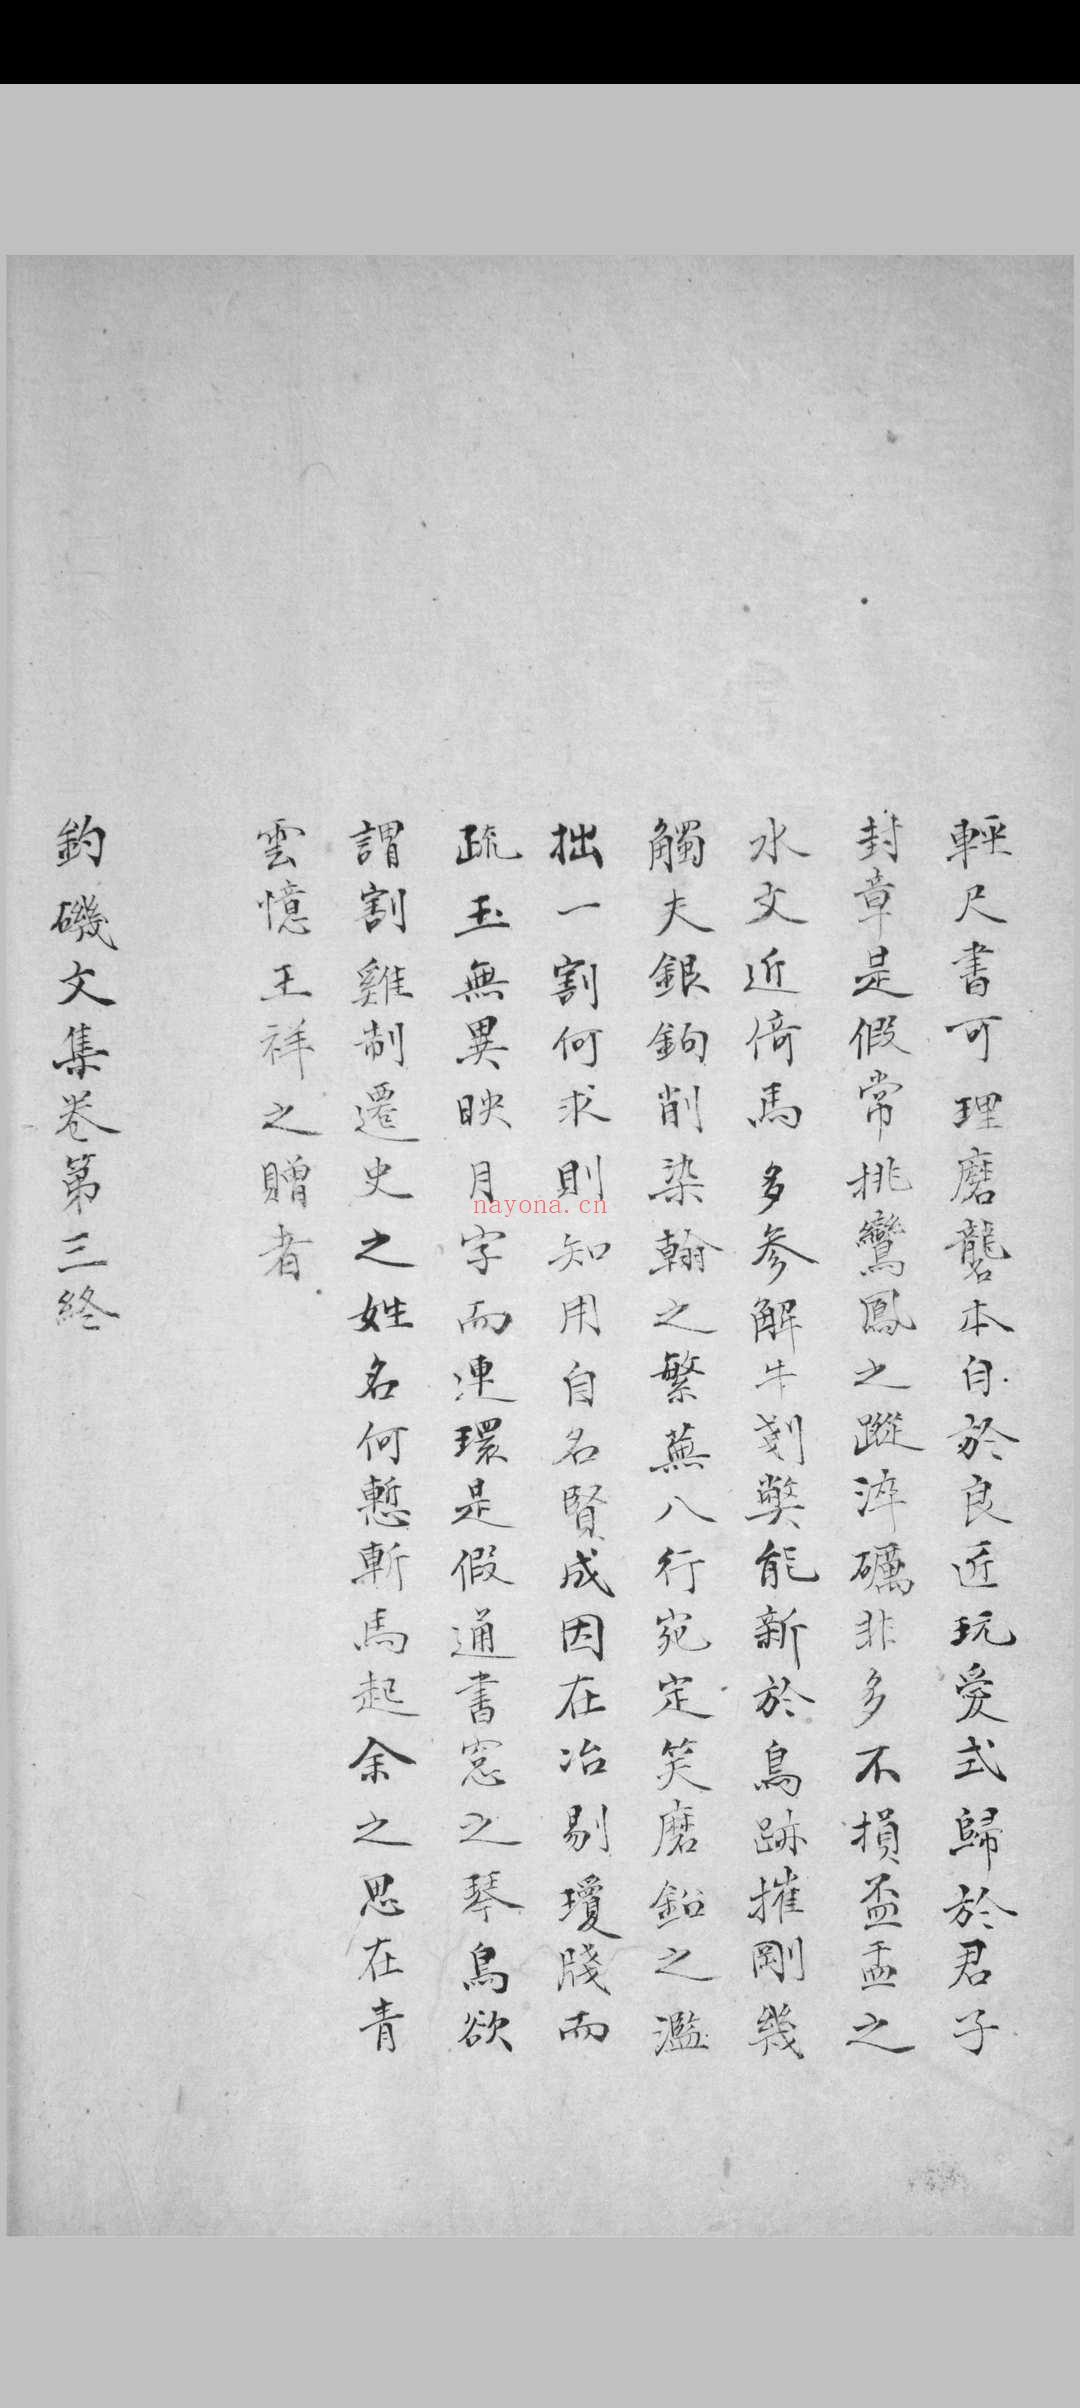 輕尺書可理磨礱本自於良匠玩愛式歸於君子
封章是假常挑鸞鳳之蹤淬礪非多不損盃盂之
水文近倚馬多參解牛剗獘能新於鳥跡摧剛幾
觸夫銀鉤削染翰之繁蕪八行宛定笑磨鉛之濫
拙一割何求則知用自名賢成因在冶剔瓊牋而
疏玉無異映月字而連環是假通書窓之琴鳥欲
謂割雞制遷史之姓名何慙斬馬起余之思在青
雲憶王祥之贈者
釣磯文集卷第三終
nayona.cn